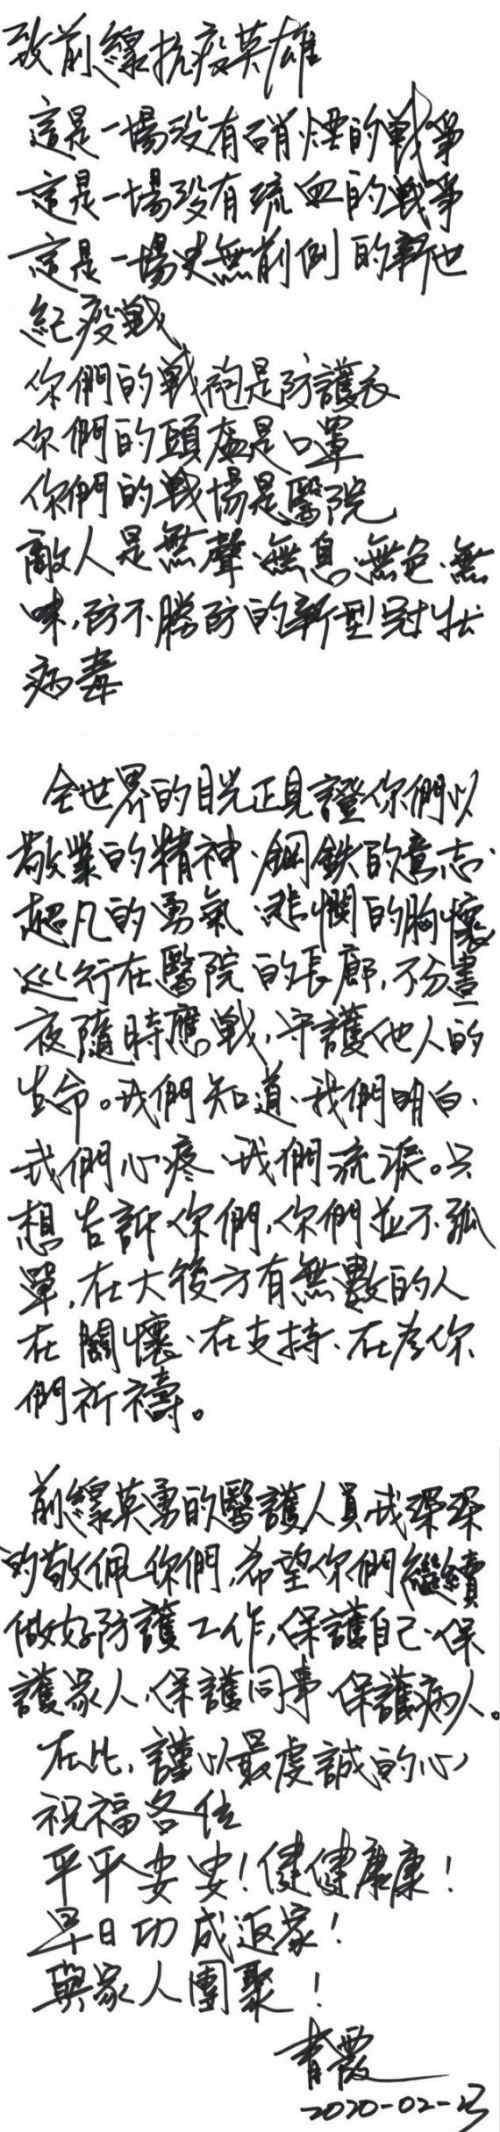 致前線抗疫英雄
這是一場没有硝煙的戰爭
這是一場没有硫血的戰爭
這是一場史無前例的新世
紀疫戰
你們的戰袍是防護衣
你們的頭盔是口罩
你們的戰場是醫院
敵人是無聲、無息、無色、無
味,防不勝防的新型冠狀
病毒
全世界的目光正見證你們以
敬業的精神、鋼鉄的意志、
超凡的勇氣、悲憫的胸懷
巡行在醫院的長廊,不分晝
夜隨時應戰,守護他人的
生命。我們知道、我們明白、
我們心疼、我們流淚。只
想告訴你們,你們並不孤
單,在大後方有無數的人
在關懷、在支持、在為你
們祈禱。
前線英勇的醫護人員,我深深
的敬佩你們,希望你們繼續
做好防護工作,保護自己、保
護家人、保護同事、保護病人。
在此,謹以最虔誠的心
祝福各位
平平安安!健健康康!
早日功成返家!
與家人團聚!
青霞
2020-02-